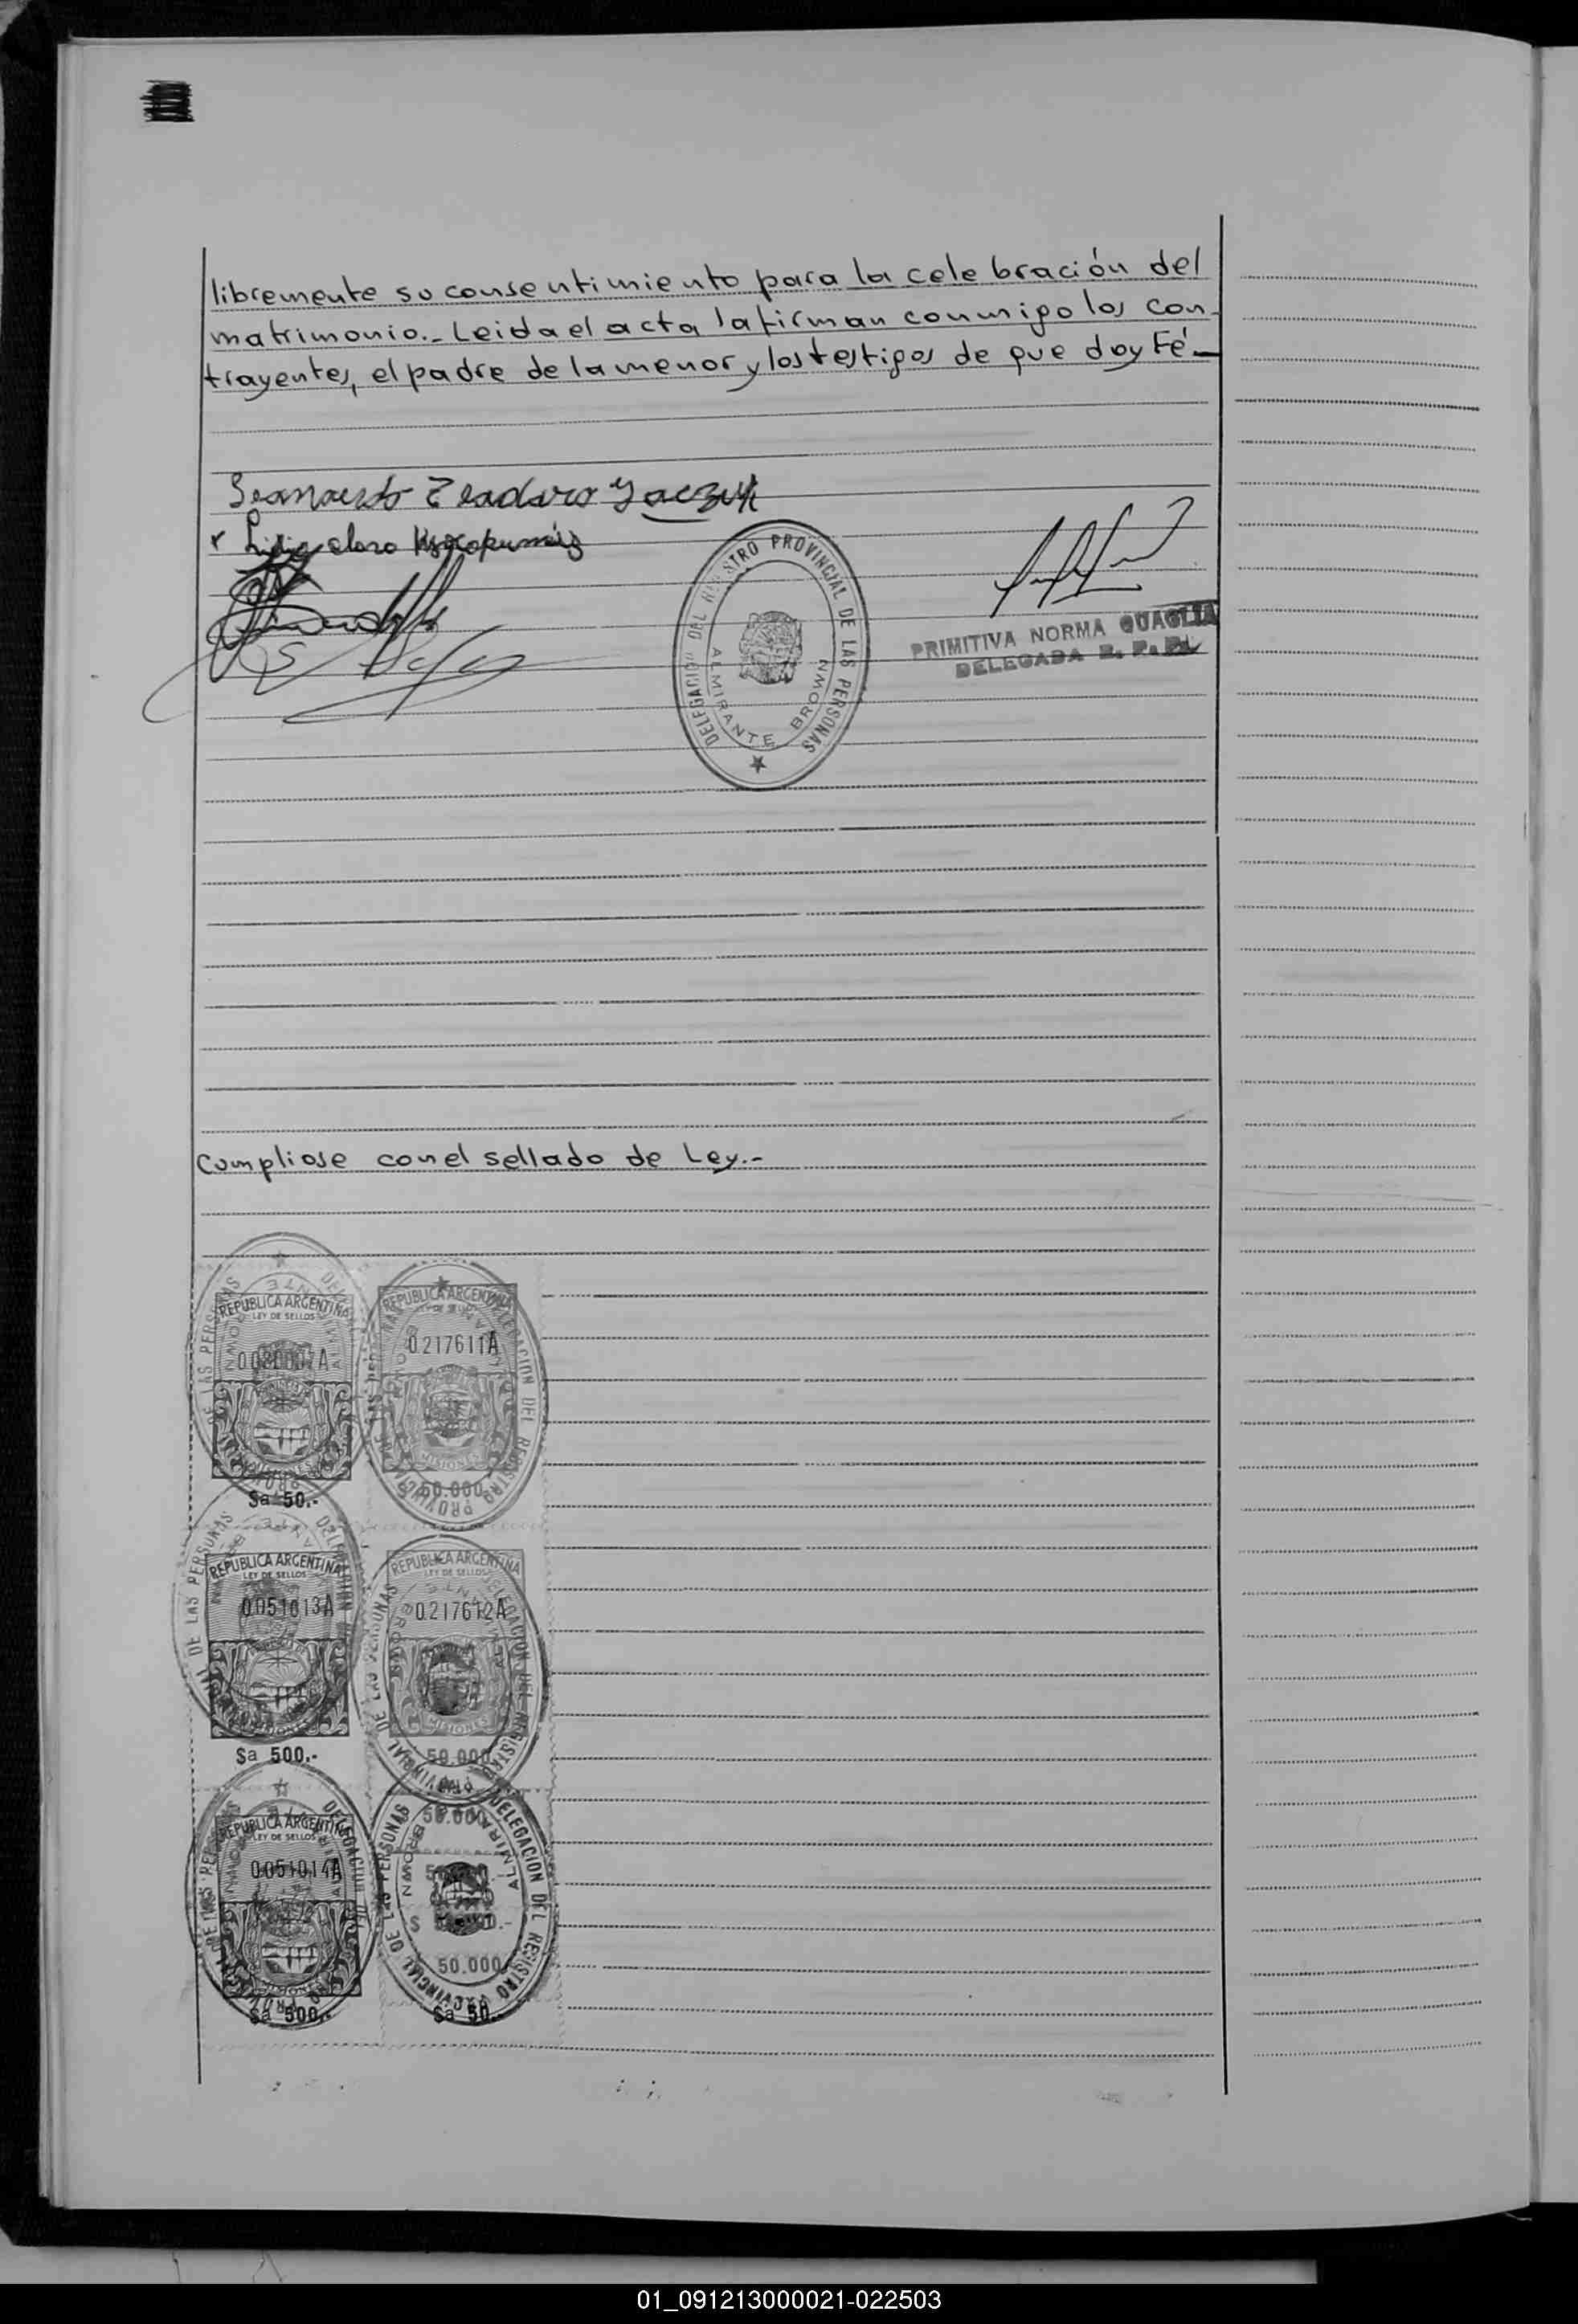 libremente su consentimiento para la celebración del
matrimonio.- Leida el acta la firman conmigo los con-
trayentes, el padre de la menor y los testigos de que doy Fé.-
Teodoro
Lidia Clara
DELEGACION DEL REGISTRO PROVINCIAL DE LAS PERSONAS
ALMIRANTE BROWN
PRIMITIVA NORMA QUAGLIA
DELEGADA R. P. P.
Cumpliose con el sellado de Ley.-
REPUBLICA ARGENTINA
LEY DE SELLOS
MISIONES
$a 50.-
REPUBLICA ARGENTINA
LEY DE SELLOS
0.217611A
MISIONES
50.000
REPUBLICA ARGENTINA
LEY DE SELLOS
0.051013A
MISIONES
$a 500.-
REPUBLICA ARGENTINA
LEY DE SELLOS
0.217612A
MISIONES
50.000
REPUBLICA ARGENTINA
LEY DE SELLOS
0.051014A
$a 500.-
50.000
50.000
$a 50.-
DELEGACION DEL REGISTRO PROVINCIAL DE LAS PERSONAS
ALMIRANTE BROWN
01_091213000021-022503